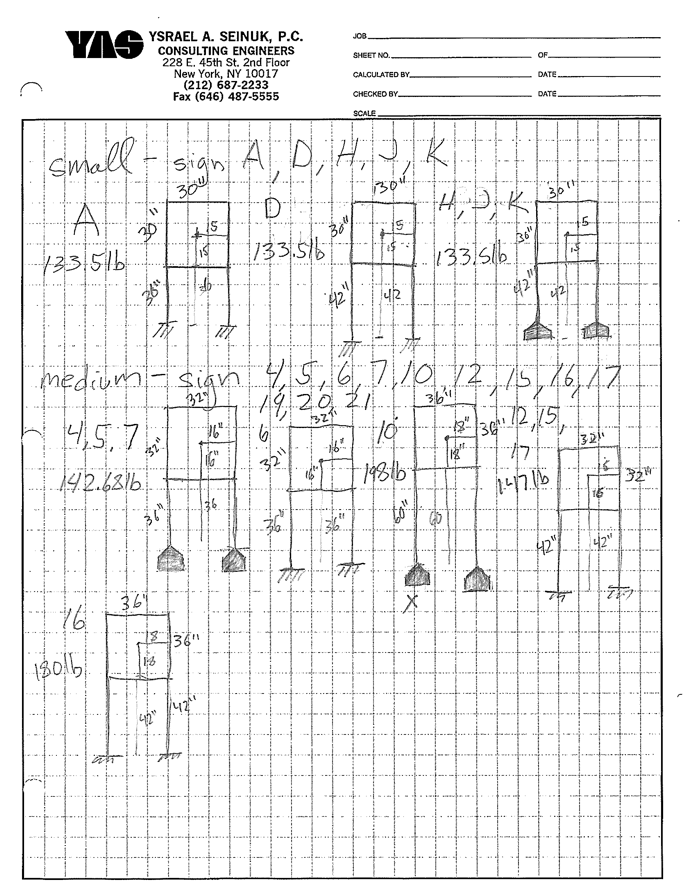 YAS YSRAEL A. SEINUK, P.C.
CONSULTING ENGINEERS
228 E. 45th St. 2nd Floor
New York, NY 10017
(212) 687-2233
Fax (646) 487-5555
JOB
SHEET NO. OF
CALCULATED BY DATE
CHECKED BY DATE
SCALE
small - sign A, D, H, J, K
A
133.5lb
30"
30"
15
15
36"
36
D
133.5lb
30"
30"
15
15
42"
42
H, J, K
133.5lb
30"
30"
15
15
42"
42
medium - sign 4, 5, 6, 7, 10, 12, 15, 16, 17
19, 20, 21
4, 5, 7
142.68lb
32"
32"
16"
16"
36"
36
6
32"
32"
16"
16"
36"
36"
10
198lb
36"
36"
18"
18"
60"
60
X
12, 15,
17
147lb
32"
32"
16
16
42"
42"
16
180lb
36"
36"
18
18
42"
42"